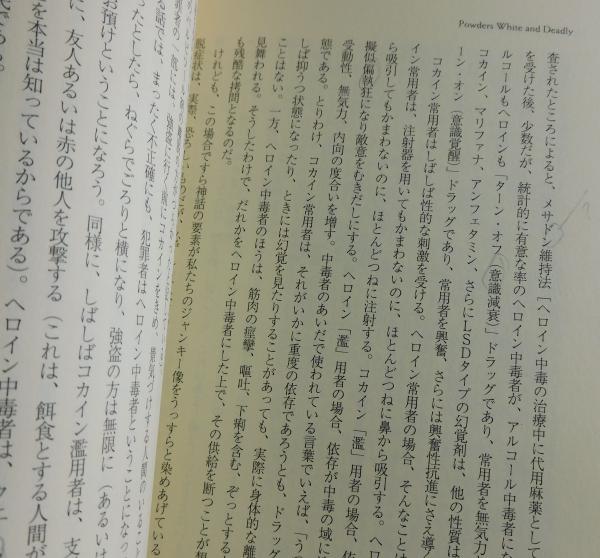 Powders White and Deadly
査されたところによると、メサドン維持法［ヘロイン中毒の治療中に代用麻薬として
を受けた後、少数だが、統計的に有意な率のヘロイン中毒者が、アルコール中毒者にな
ルコールもヘロインも「ターン・オフ（意識減衰）」ドラッグであり、常用者を無気力
コカイン、マリファナ、アンフェタミン、さらにLSDタイプの幻覚剤は、他の性質は
ーン・オン（意識覚醒）」ドラッグであり、常用者を興奮、さらには興奮性抗進にさえ導
コカイン常用者はしばしば性的な刺激を受ける。ヘロイン常用者の場合、そんなこと
イン常用者は、注射器を用いてもかまわないのに、ほとんどつねに鼻から吸引する。ヘロ
ら吸引してもかまわないのに、ほとんどつねに注射する。コカイン「濫」用者の場合、
擬似偏執狂になり敵意をむきだしにする。ヘロイン「濫」用者の場合、依
受動性、無気力、内向の度合いを増す。中毒者のあいだで使われている言葉でいえば、「う
態である。とりわけ、コカイン常用者は、それがいかに重度の依存であろうとも、ドラッグ
しば抑うつ状態になったり、ときには幻覚を見たりすることがあっても、実際に身体的な離
ことはない。一方、ヘロイン中毒者のほうは、筋肉の痙攣、嘔吐、下痢を含む、ぞっとする
見舞われる。そうしたわけで、だれかをヘロイン中毒者にした上で、その供給を断つことが
も残酷な拷問となるのだ。
けれども、この場合ですら神話の要素が私たちのジャンキー像をうっすらと染めあげている
脱症状は、実際、恐ろしい
る話では、まったく不正確にも、犯罪者はヘロイン中毒者ということにな
ったとしたら、ねぐらでごろりと横になり、強盗の方は無限に（あるいは
お預けということになろう。同様に、しばしばコカイン濫用者は、支
に、友人あるいは赤の他人を攻撃する（これは、餌食とする人間が
を本当は知っているからである）。ヘロイン中毒者は、